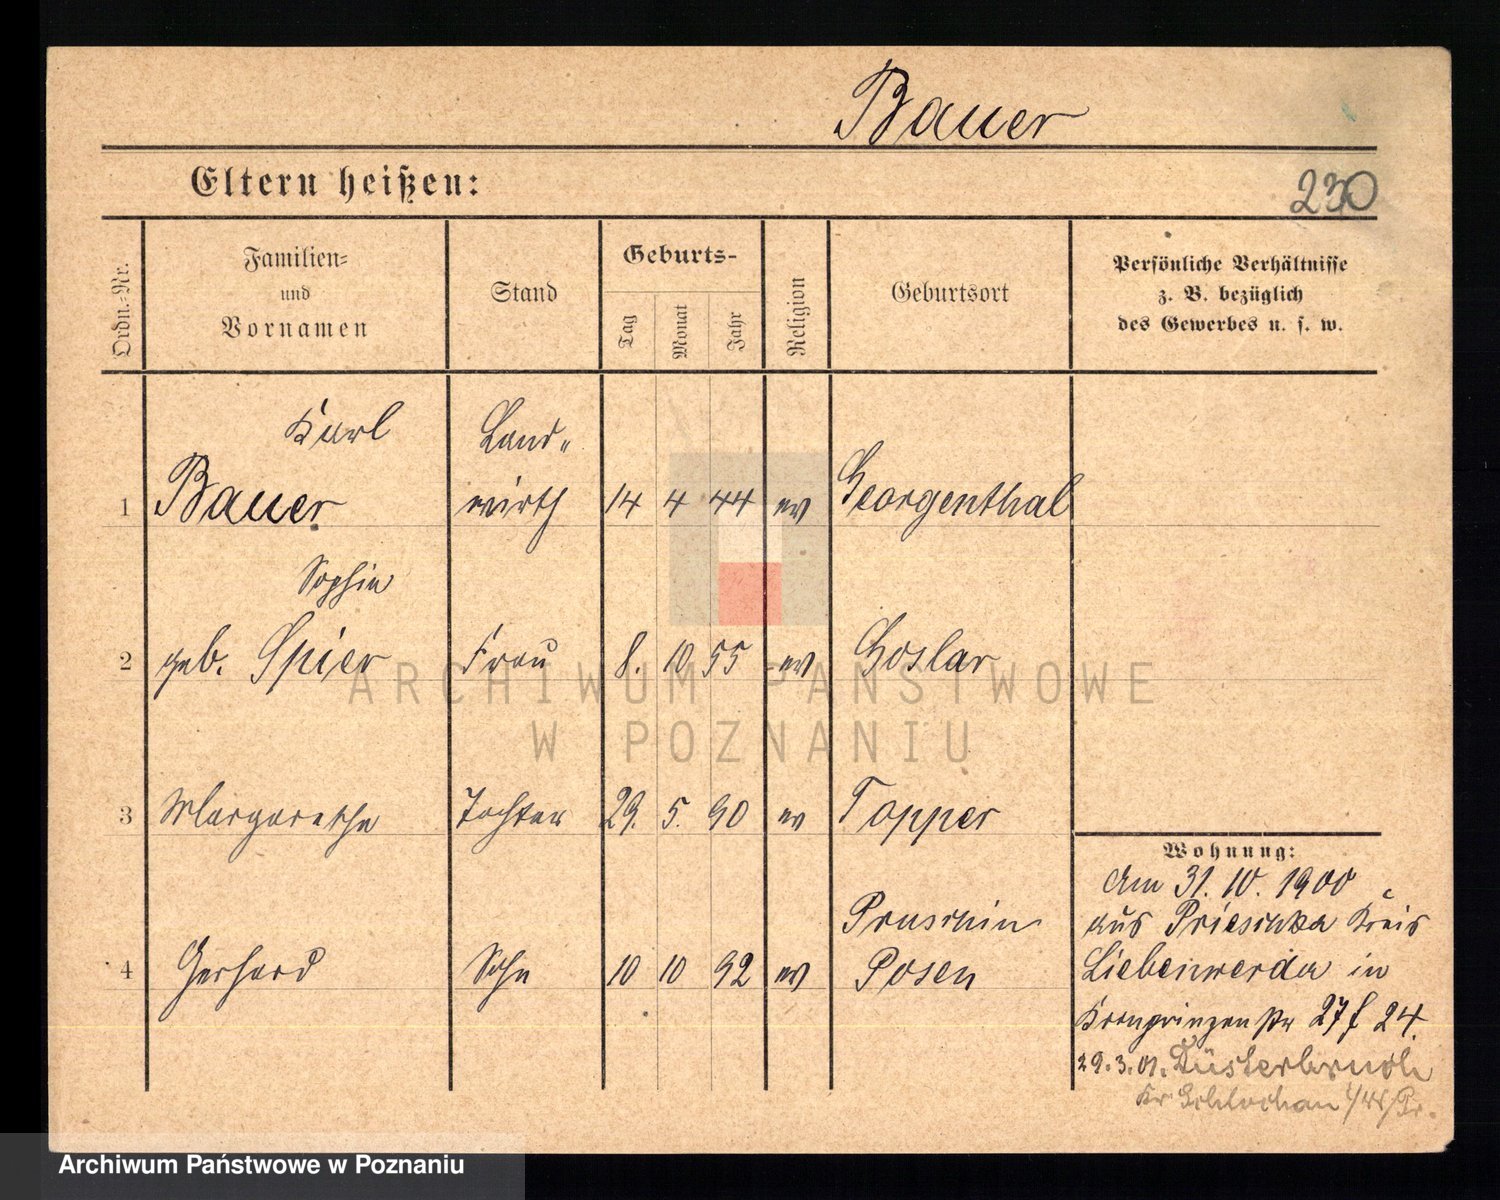 Bauer
Eltern heißen:
230
Ordn.-Nr.
Familien-
und
Vornamen
Stand
Geburts-
Tag
Monat
Jahr
Religion
Geburtsort
Persönliche Verhältnisse
z. B. bezüglich
des Gewerbes u. s. w.
Karl
Land-
1 Bauer wirth 14 4 44 ev Georgenthal
Sophie
2 geb. Spier Frau 8. 10 55 ev Goslar
3 Margarethe Tochter 29. 5. 90 ev Topper
Pruschin
4 Gerhard Sohn 10 10 92 ev Posen
Wohnung:
Am 31. 10. 1900
aus Prieschka Kreis
Liebenwerda in
Kronprinzen str 27 f 24.
29.3.01. Düsterbruch
Kr Schlochau
ARCHIWUM PAŃSTWOWE
W POZNANIU
Archiwum Państwowe w Poznaniu